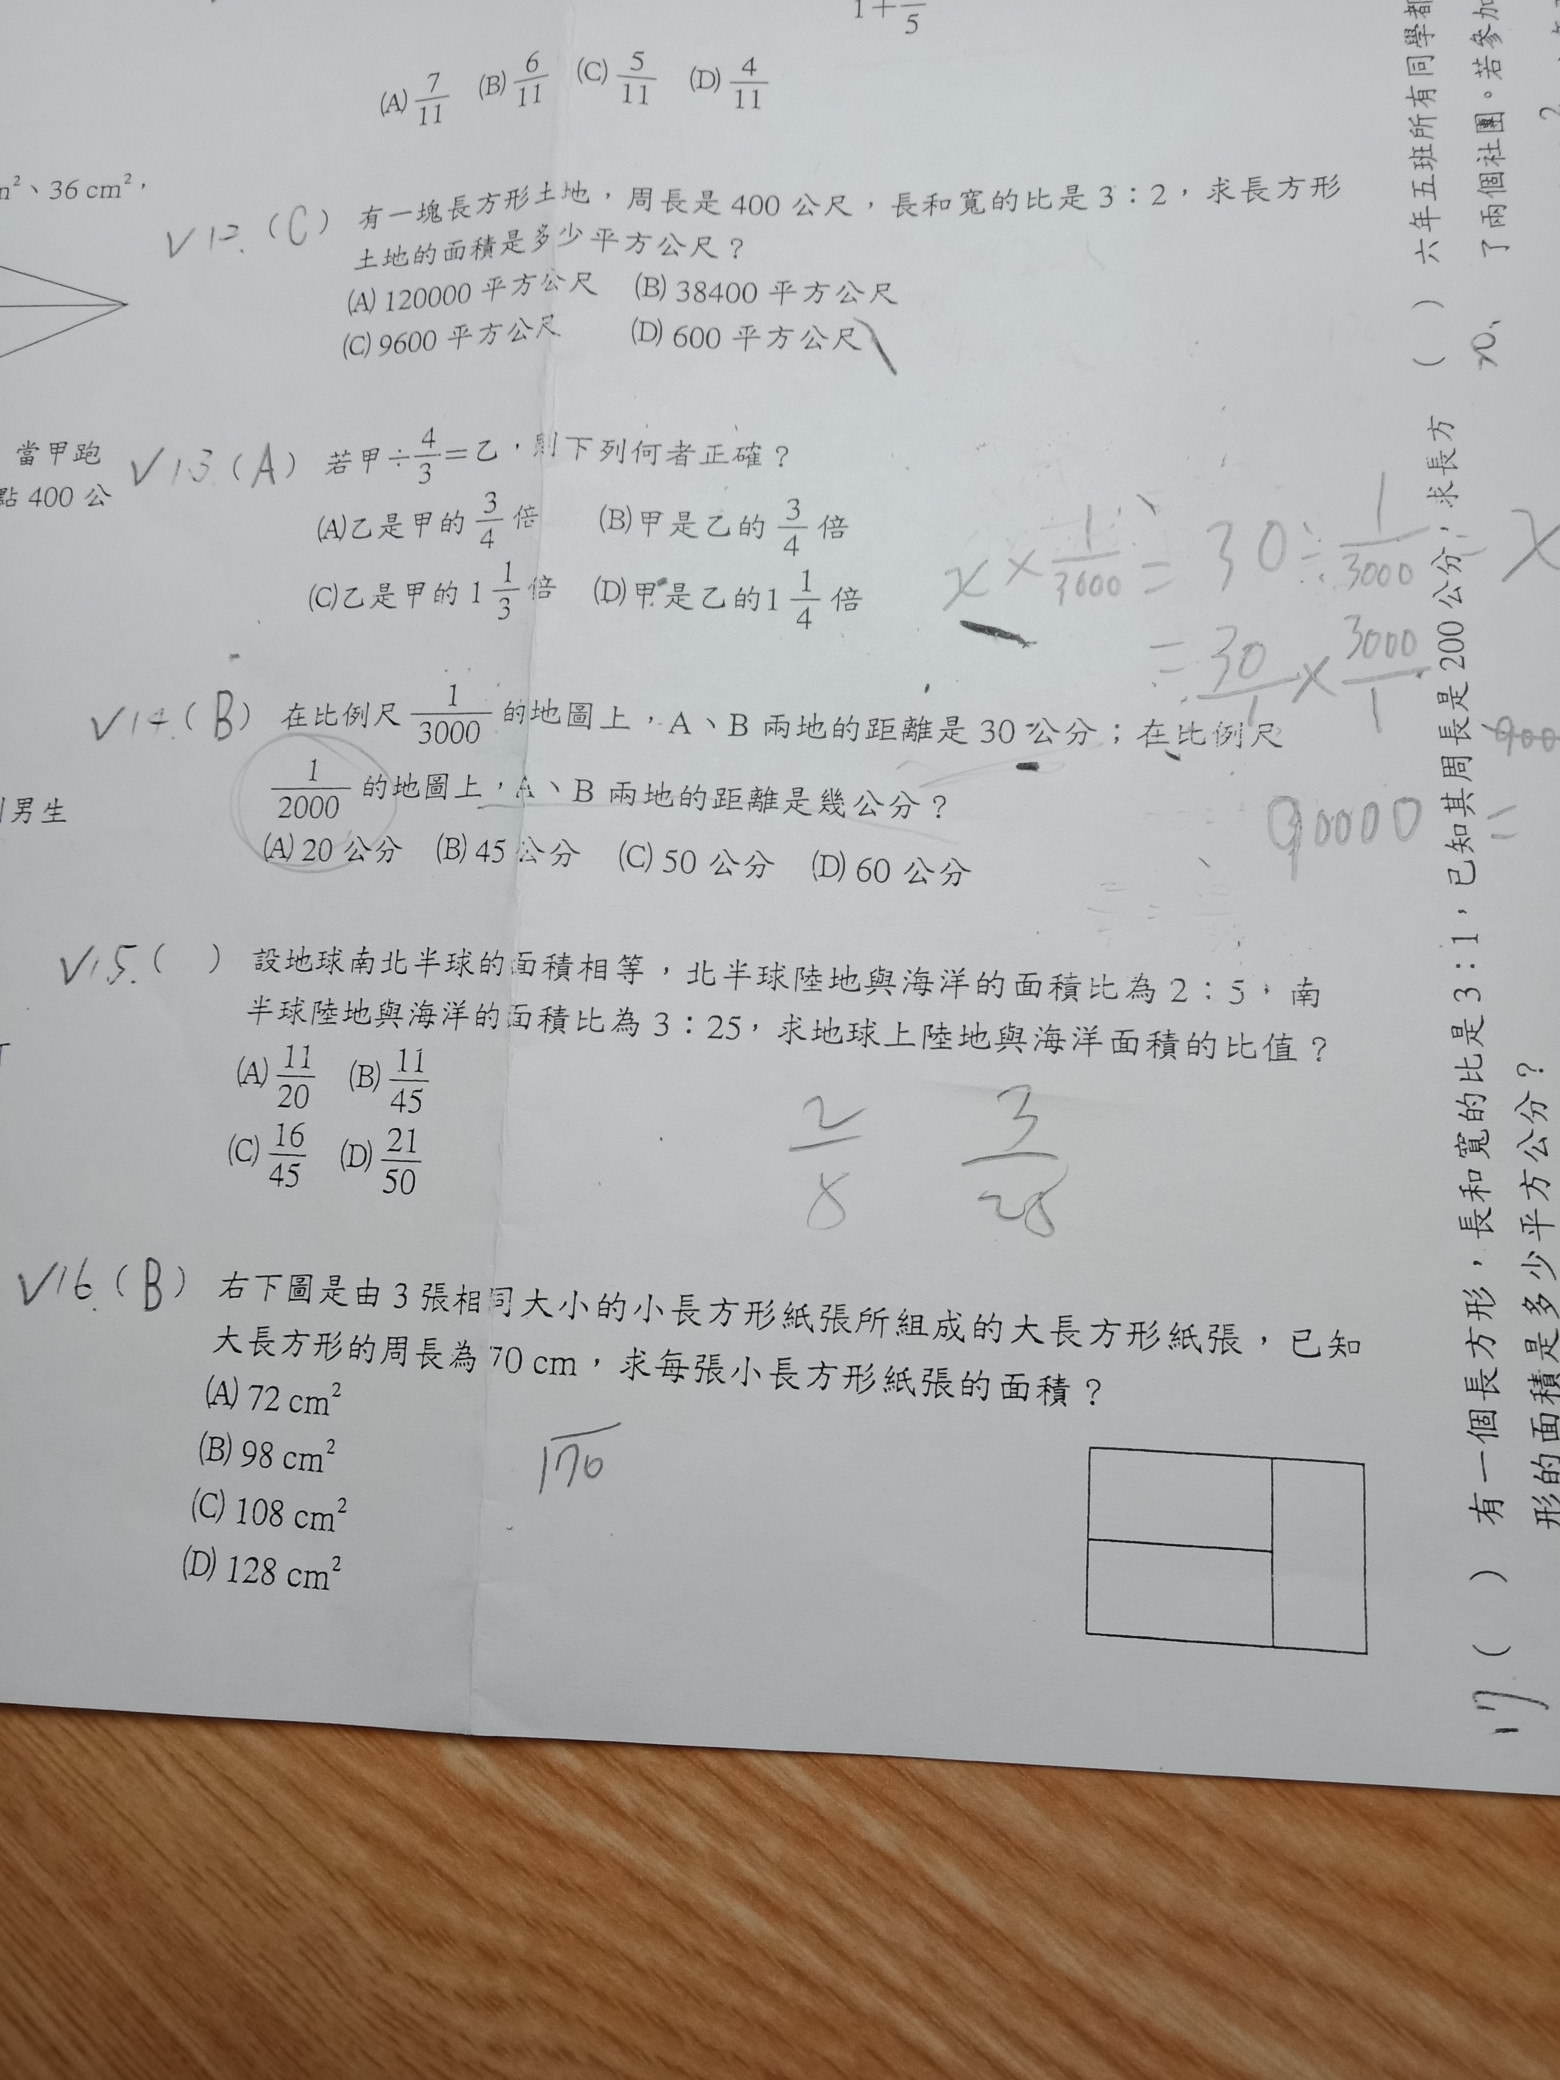 1+
5
(A) 7/11 (B) 6/11 (C) 5/11 (D) 4/11
、36 cm²，
V 12. (C) 有一塊長方形土地，周長是 400 公尺，長和寬的比是 3：2，求長方形
土地的面積是多少平方公尺？
(A) 120000 平方公尺 (B) 38400 平方公尺
(C) 9600 平方公尺 (D) 600 平方公尺
當甲跑
點 400 公
V 13 (A) 若甲÷4/3=乙，則下列何者正確？
(A)乙是甲的 3/4 倍 (B)甲是乙的 3/4 倍
(C)乙是甲的 1 1/3 倍 (D)甲是乙的1 1/4 倍
x × 1/3000 = 30 ÷ 1/3000
= 30/1 × 3000/1
90000 =
V 14. (B) 在比例尺 1/3000 的地圖上，A、B 兩地的距離是 30 公分；在比例尺
1/2000 的地圖上，A、B 兩地的距離是幾公分？
(A) 20 公分 (B) 45 公分 (C) 50 公分 (D) 60 公分
男生
V 15. ( ) 設地球南北半球的面積相等，北半球陸地與海洋的面積比為 2：5，南
半球陸地與海洋的面積比為 3：25，求地球上陸地與海洋面積的比值？
(A) 11/20 (B) 11/45
(C) 16/45 (D) 21/50
2/8 3/28
V 16. (B) 右下圖是由 3 張相同大小的小長方形紙張所組成的大長方形紙張，已知
大長方形的周長為 70 cm，求每張小長方形紙張的面積？
(A) 72 cm²
(B) 98 cm²
(C) 108 cm²
(D) 128 cm²
170
( ) 六年五班所有同學都
了兩個社團。若參加
17 ( ) 有一個長方形，長和寬的比是 3：1，已知其周長是 200 公分，求長方
形的面積是多少平方公分？